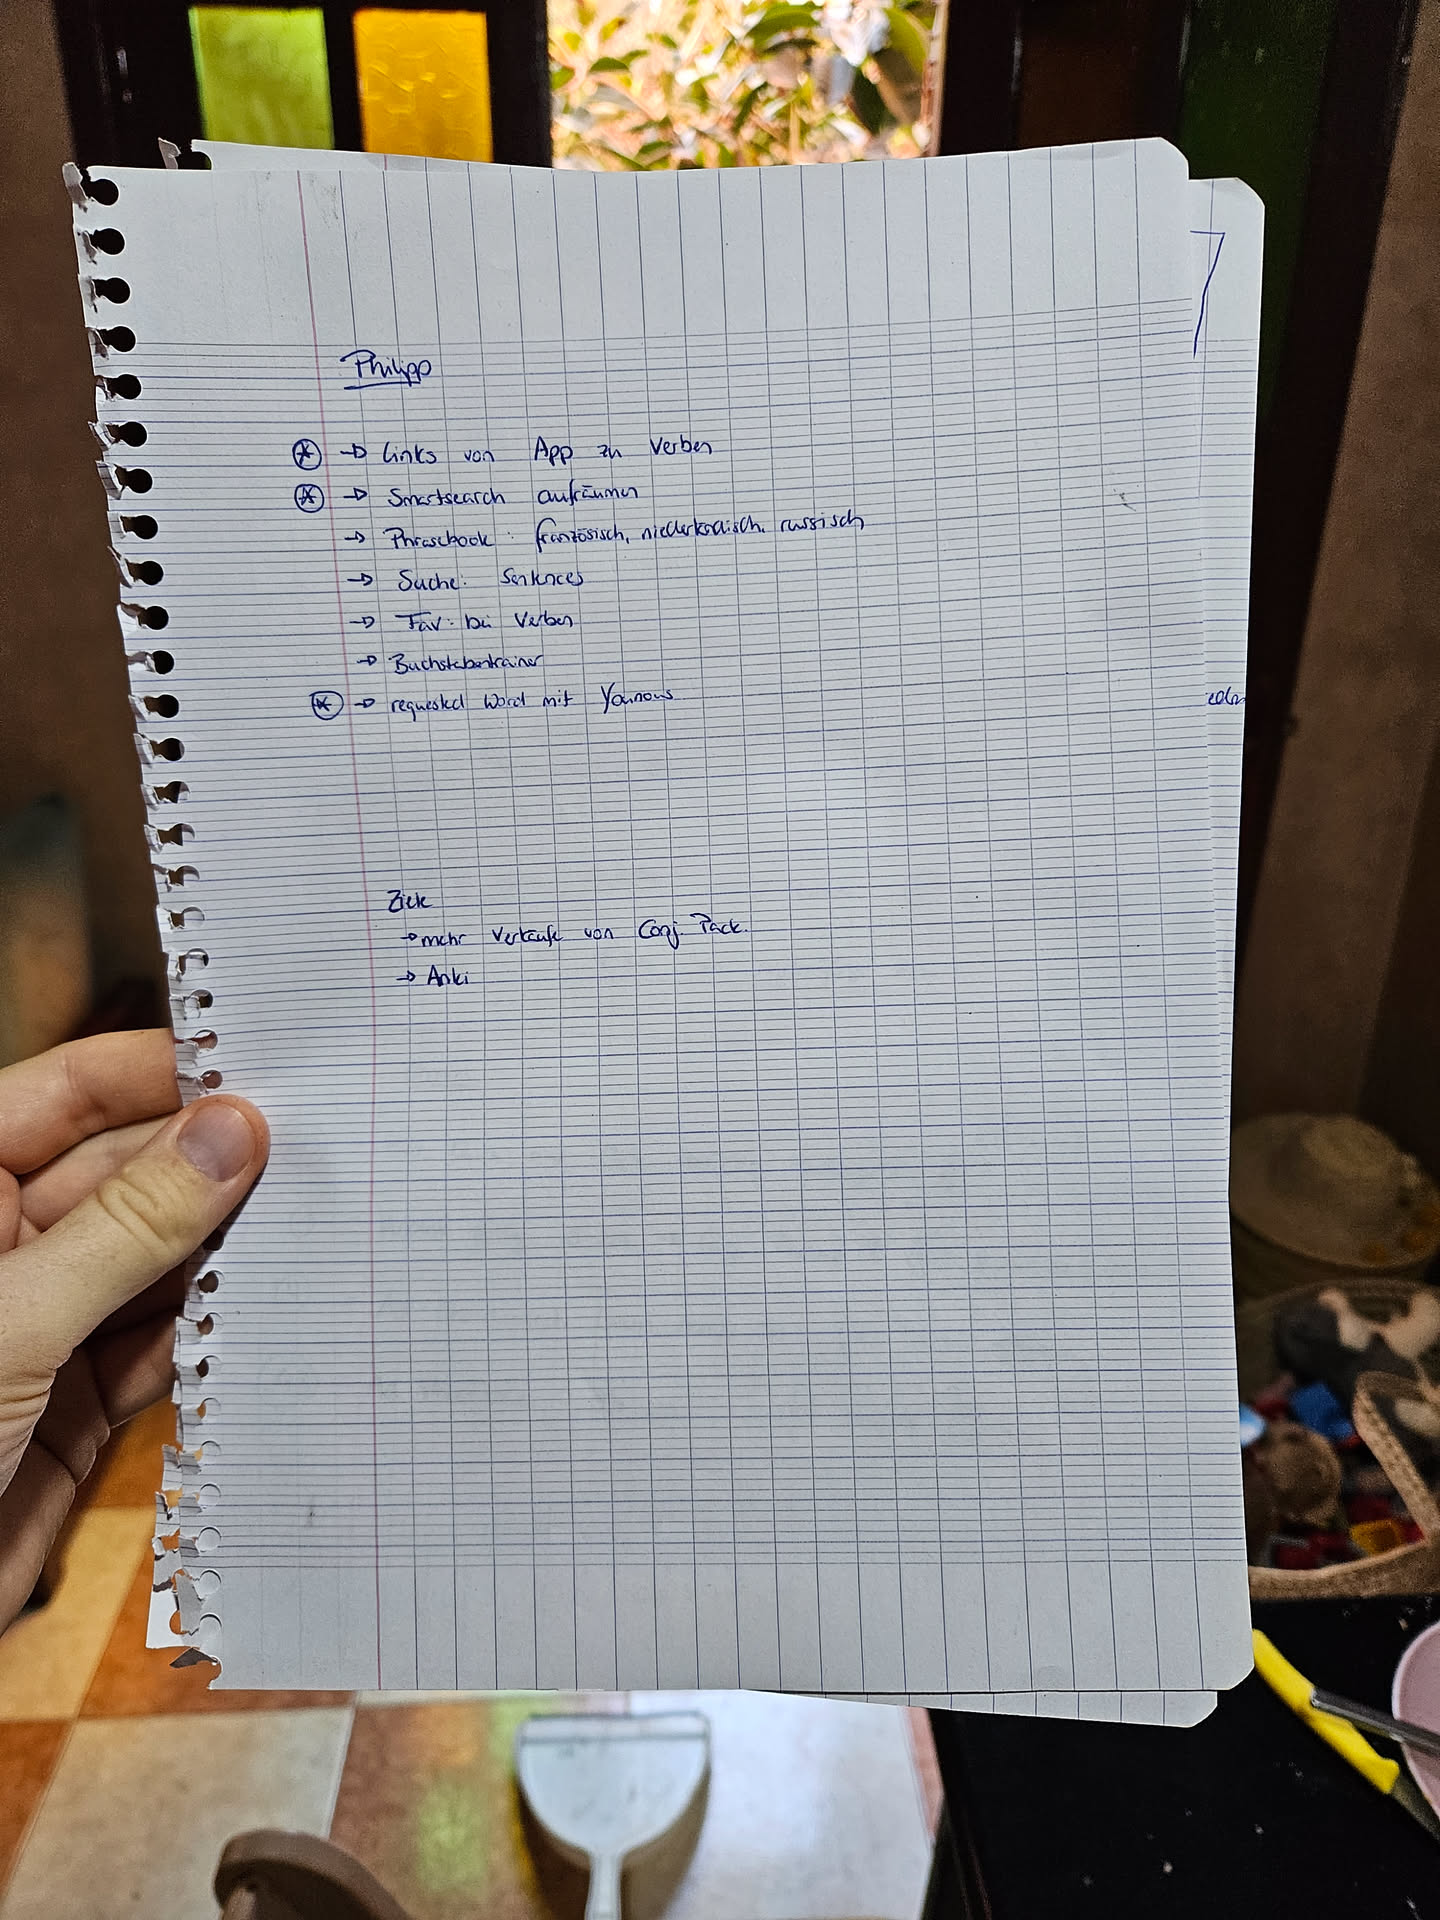 Philipp
→ Links von App zu Verben
→ Smartsearch aufräumen
→ Phrasebook: französisch, niederländisch, russisch
→ Suche: Sentences
→ Fav. bei Verben
→ Buchstabentrainer
→ requested Word mit Younous
Ziele
→ mehr Verkäufe von Conj. Pack.
→ Anki